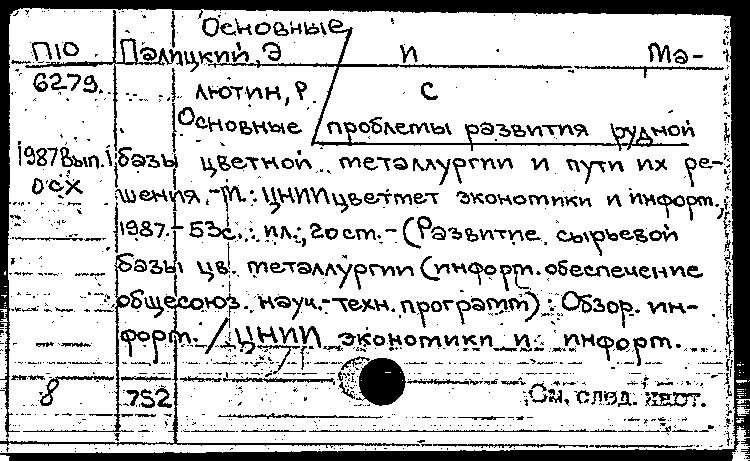 Основные
П10 Палицкий, Э и Ма-
6279. лютин, Р С
Основные проблемы развития рудной
1987 Вып.1 базы цветной металлургии и пути их ре-
ОСХ шения. - М.: ЦНИИцветмет экономики и информ.,
1987. - 53с.: ил.; 20 см. - (Развитие сырьевой
базы цв. металлургии (информ. обеспечение
общесоюз. науч.-техн. программ): Обзор. ин-
форм. / ЦНИИ экономики и информ.
8 752 См. след. карт.